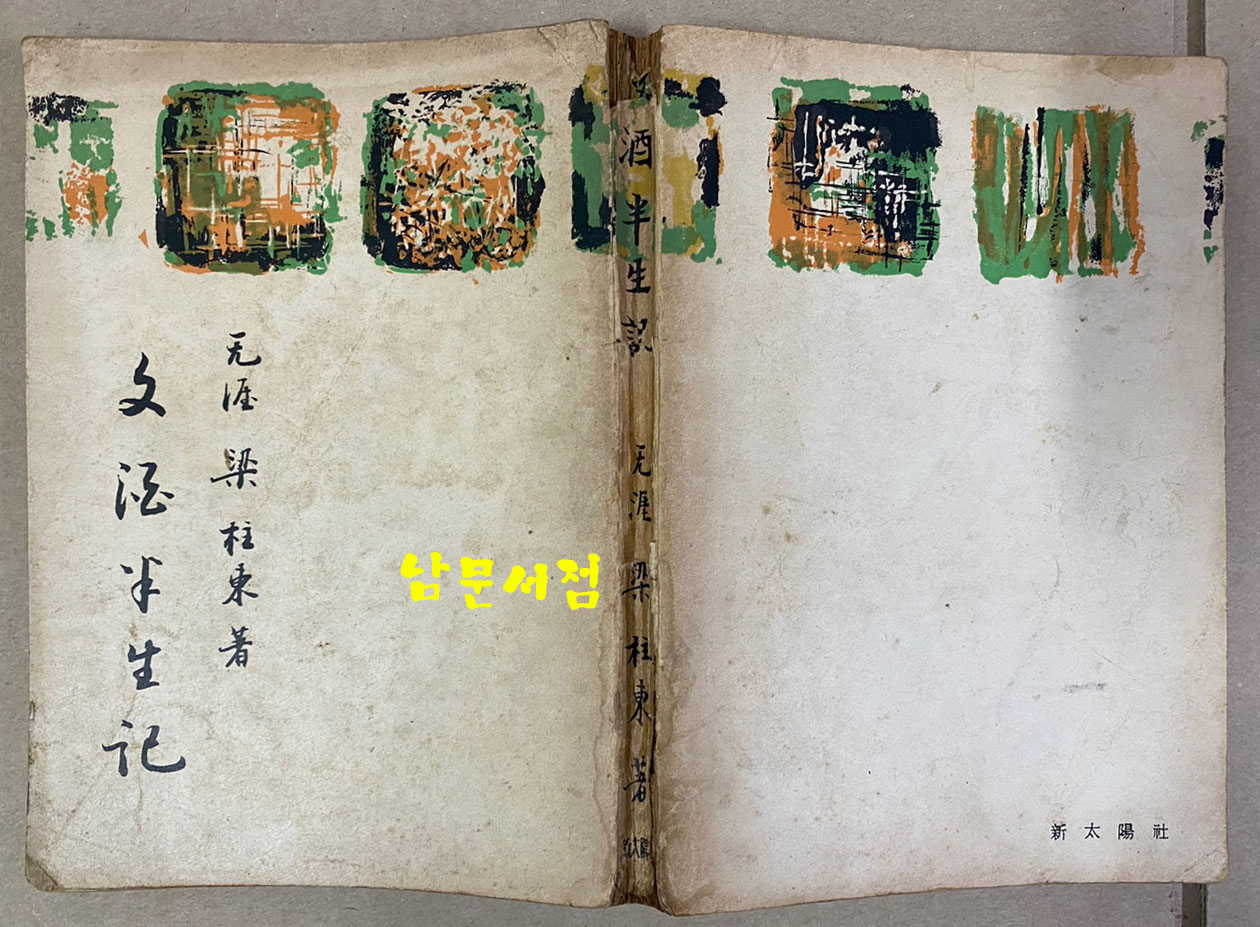 无涯 梁柱東 著
文酒半生記
酒半生記 无涯 梁柱東 著
남문서점
新太陽社